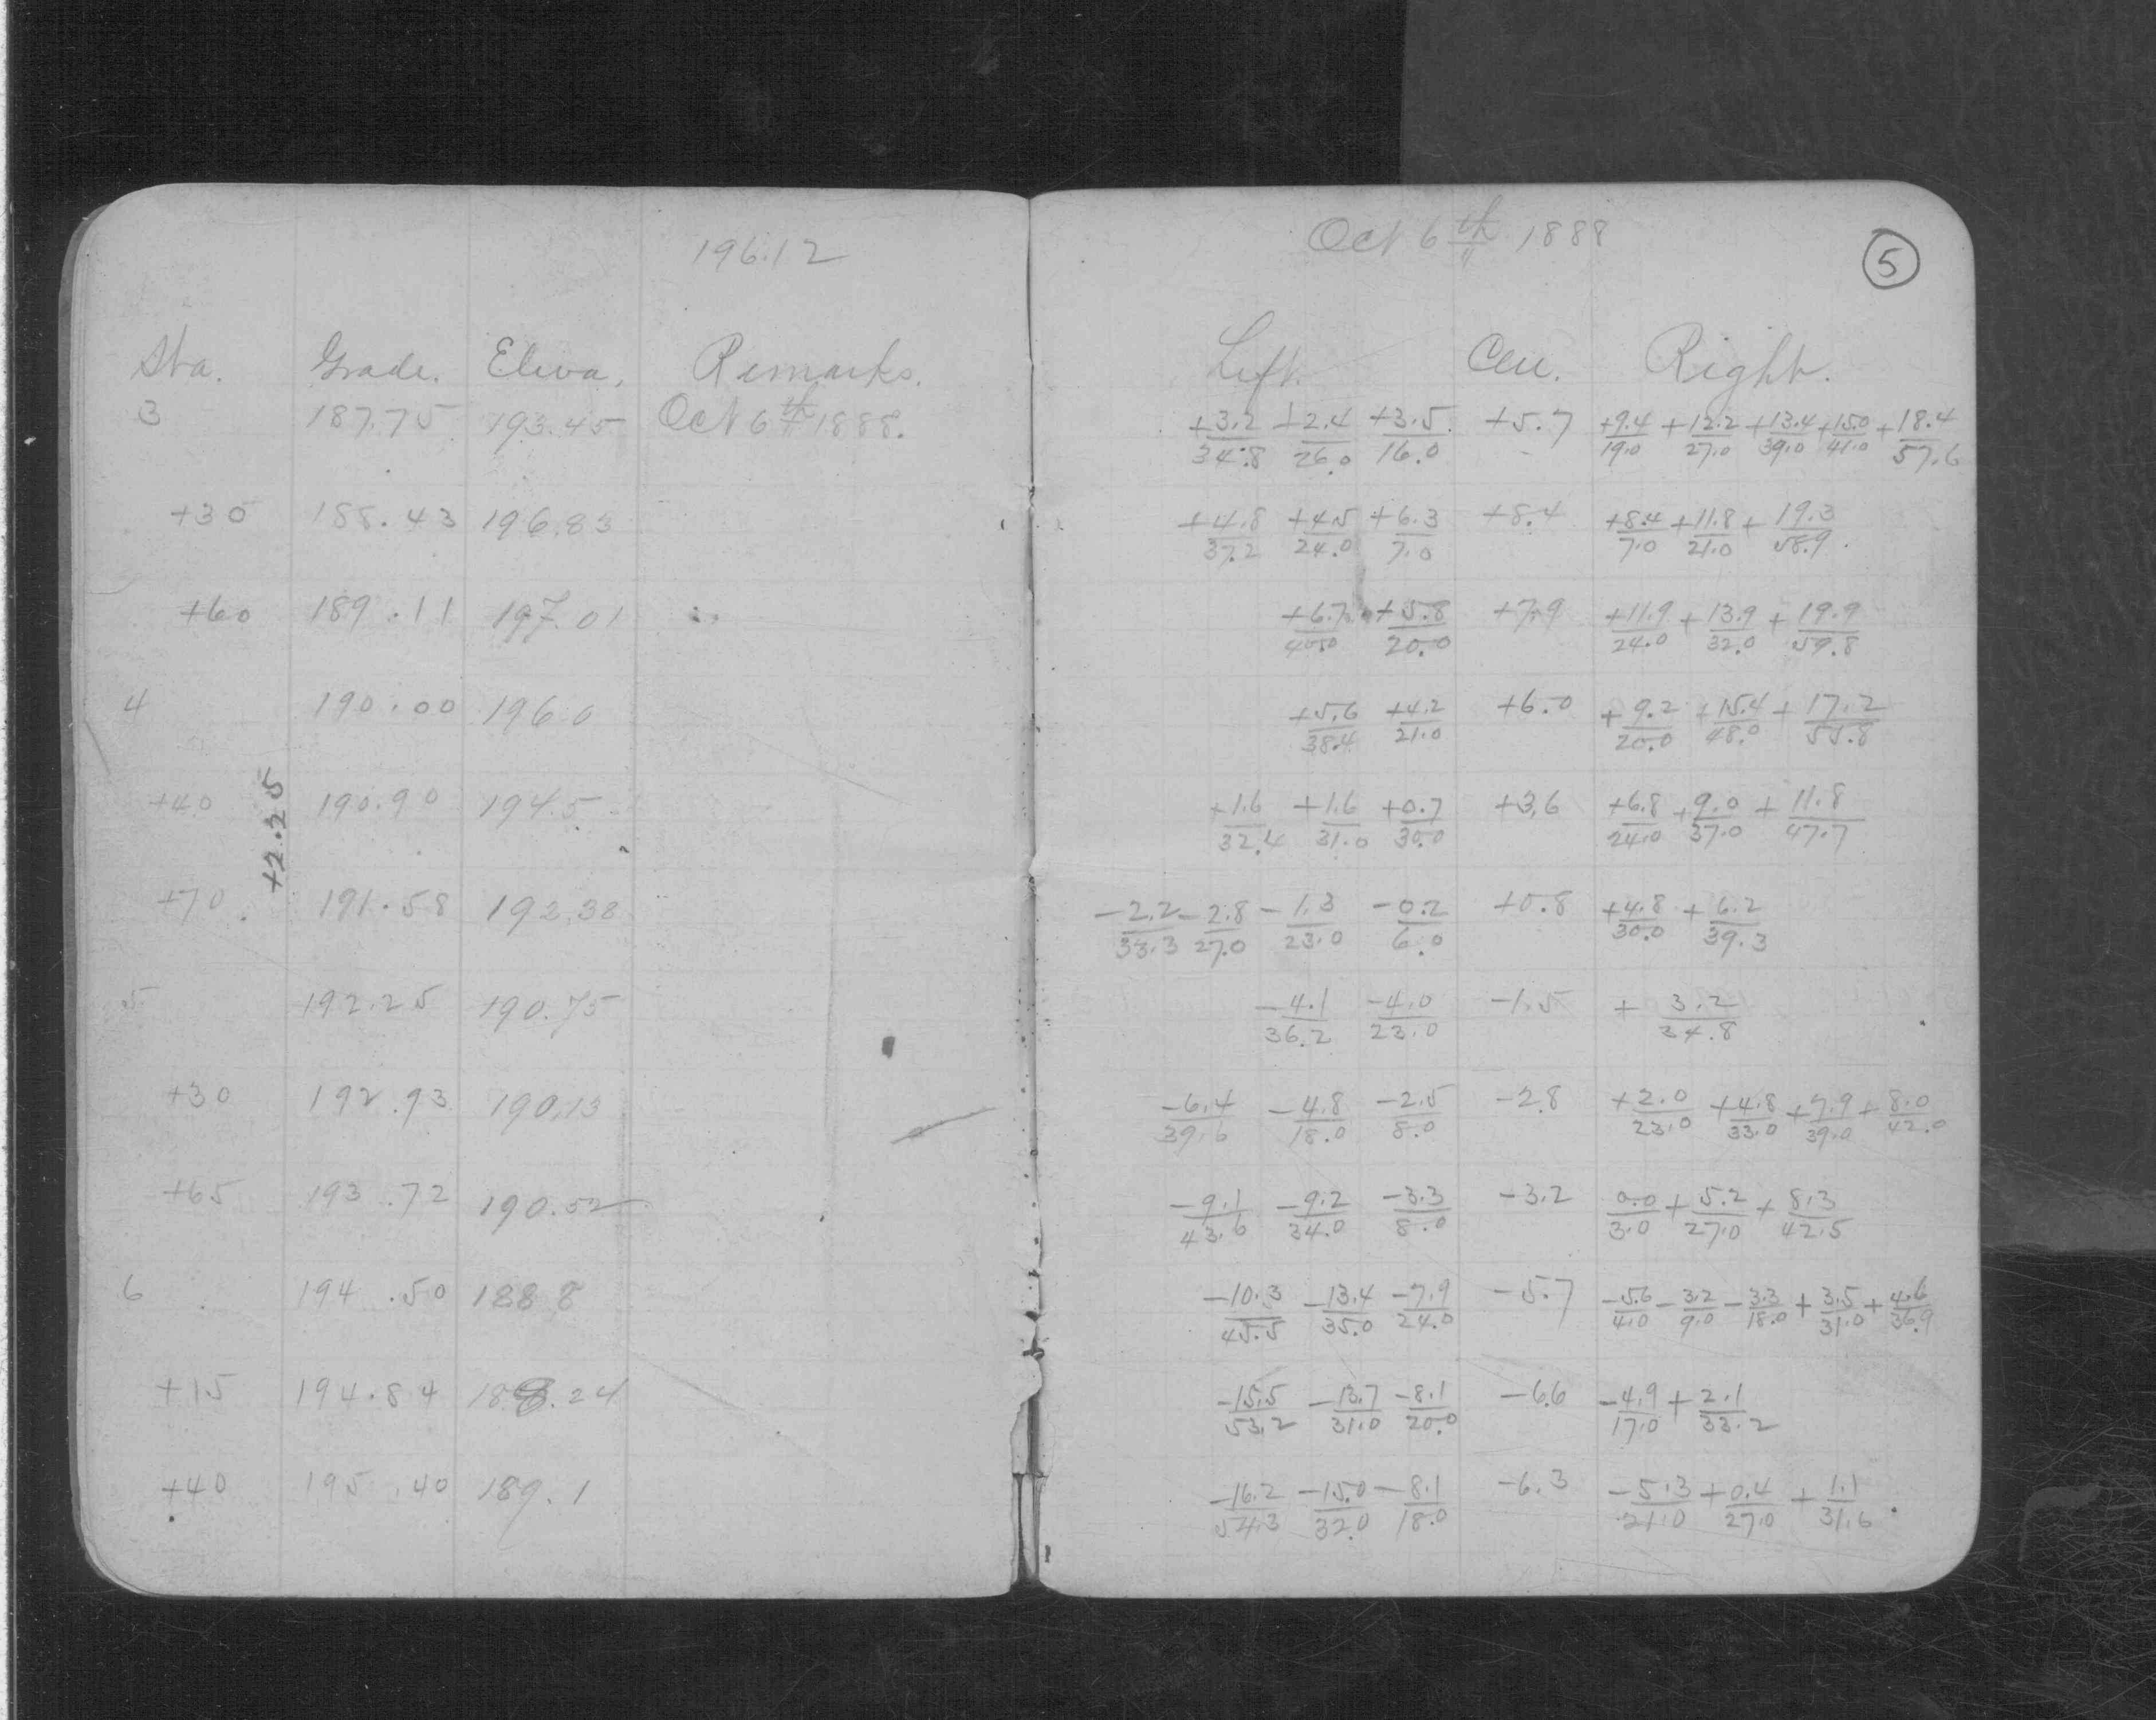 196.12
Sta. Grade. Eleva. Remarks.
3 187.75 193.45 Oct 6th 1888.
+30 188.43 196.83
+60 189.11 197.01
4 190.00 196.0
+2.25
+40 190.90 194.5
+70 191.58 192.38
5 192.25 190.75
+30 192.93 190.13
+65 193.72 190.52
6 194.50 188.8
+15 194.84 188.24
+40 195.40 189.1
Oct 6th 1888
5
Left. Cen. Right.
+3.2/34.8 +2.4/26.0 +3.5/16.0 +5.7 +9.4/19.0 +12.2/27.0 +13.4/39.0 +15.0/41.0 +18.4/57.6
+4.8/37.2 +4.5/24.0 +6.3/7.0 +8.4 +8.4/7.0 +11.8/21.0 +19.3/58.9
+6.7/40.0 +5.8/20.0 +7.9 +11.9/24.0 +13.9/32.0 +19.9/59.8
+5.6/38.4 +4.2/21.0 +6.0 +9.2/20.0 +15.4/48.0 +17.2/55.8
+1.6/32.4 +1.6/31.0 +0.7/30.0 +3.6 +6.8/24.0 +9.0/37.0 +11.8/47.7
-2.2/33.3 -2.8/27.0 -1.3/23.0 -0.2/6.0 +0.8 +4.8/30.0 +6.2/39.3
-4.1/36.2 -4.0/23.0 -1.5 +3.2/34.8
-6.4/39.6 -4.8/18.0 -2.5/8.0 -2.8 +2.0/23.0 +4.8/33.0 +7.9/39.0 +8.0/42.0
-9.1/43.6 -9.2/34.0 -3.3/8.0 -3.2 0.0/3.0 +5.2/27.0 +8.3/42.5
-10.3/45.5 -13.4/35.0 -7.9/24.0 -5.7 -5.6/4.0 -3.2/9.0 -3.3/18.0 +3.5/31.0 +4.6/36.9
-15.5/53.2 -13.7/31.0 -8.1/20.0 -6.6 -4.9/17.0 +2.1/33.2
-16.2/54.3 -15.0/32.0 -8.1/18.0 -6.3 -5.3/21.0 +0.4/27.0 +1.1/31.6